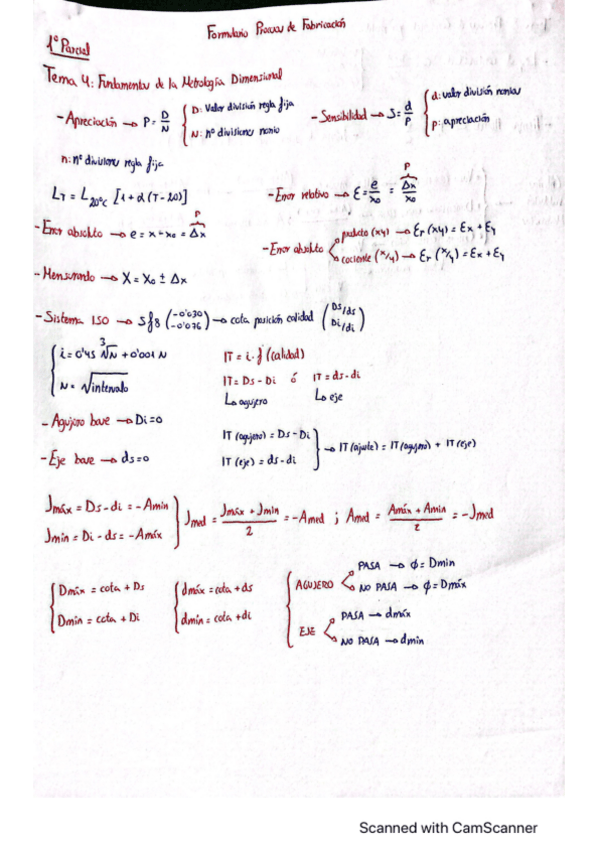 Formulario Procesos de Fabricación
1º Parcial
Tema 4: Fundamentos de la Metrología Dimensional
- Apreciación → P = D/N { D: Valor división regla fija
N: nº divisiones nonio
- Sensibilidad → S = d/P { d: valor división nonius
p: apreciación
n: nº divisiones regla fija
L_T = L_20ºC [1 + α (T - 20)]
- Error relativo → ε = e/x₀ = Δx/x₀ (P)
- Error absoluto → e = x - x₀ = Δx (P)
- Error absoluto
producto (xy) → Er (xy) = Ex + Ey
cociente (x/y) → Er (x/y) = Ex + Ey
- Mensurando → X = X₀ ± Δx
- Sistema ISO → 5f8 (-0'030 / -0'076) → cota posición calidad (Ds/ds Di/di)
{ i = 0'45 ³√N + 0'001 N
N = √intervalo
IT = i · f (calidad)
IT = Ds - Di ó IT = ds - di
↳ agujero ↳ eje
- Agujero base → Di = 0
- Eje base → ds = 0
IT (agujero) = Ds - Di
IT (eje) = ds - di
} → IT (ajuste) = IT (agujero) + IT (eje)
Jmáx = Ds - di = - Amin
Jmin = Di - ds = - Amáx
} Jmed = (Jmáx + Jmin)/2 = - Amed ; Amed = (Amáx + Amin)/2 = - Jmed
{ Dmáx = cota + Ds
Dmin = cota + Di
{ dmáx = cota + ds
dmin = cota + di
{ AGUJERO
PASA → ϕ = Dmin
NO PASA → ϕ = Dmáx
EJE
PASA → dmáx
NO PASA → dmin
Scanned with CamScanner